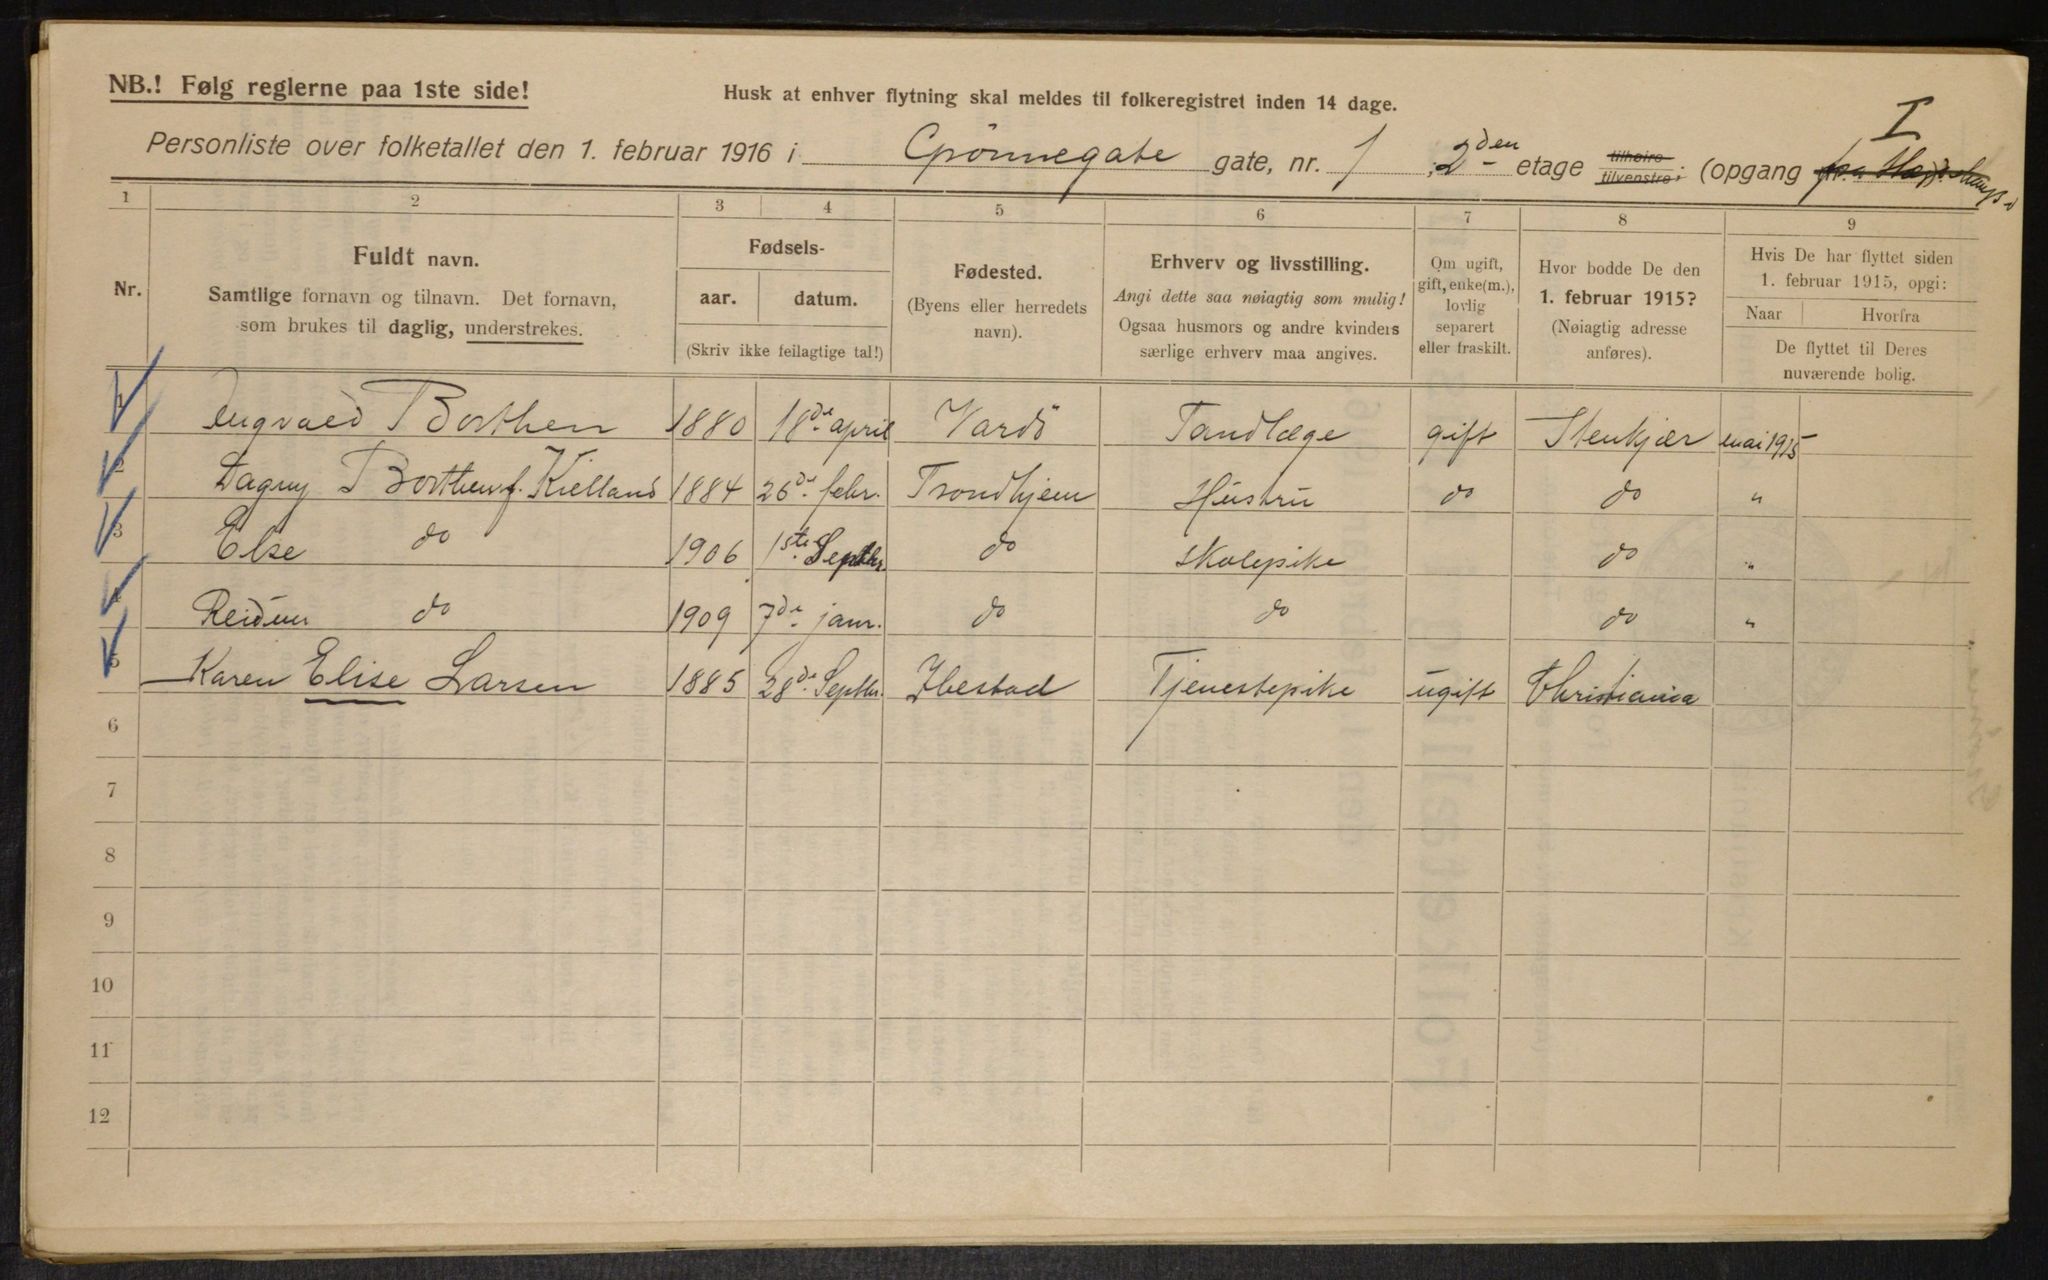 NB.! Følg reglerne paa 1ste side!
Husk at enhver flytning skal meldes til folkeregistret inden 14 dage.
I
Personliste over folketallet den 1. februar 1916 i Grönnegate gate, nr. 1, 2den etage tilhøire tilvenstre; (opgang
1 2 3 4 5 6 7 8 9
Nr.
Fuldt navn.
Samtlige fornavn og tilnavn. Det fornavn,
som brukes til daglig, understrekes.
Fødsels-
aar. datum.
(Skriv ikke feilagtige tal!)
Fødested.
(Byens eller herredets
navn).
Erhverv og livsstilling.
Angi dette saa nøiagtig som mulig!
Ogsaa husmors og andre kvinders
særlige erhverv maa angives.
Om ugift,
gift, enke(m.),
lovlig
separert
eller fraskilt.
Hvor bodde De den
1. februar 1915?
(Nøiagtig adresse
anføres).
Hvis De har flyttet siden
1. februar 1915, opgi:
Naar Hvorfra
De flyttet til Deres
nuværende bolig.
1 Ingvald Borthen 1880 18de april Vardö Tandlæge gift Stenkjær mai 1915
2 Dagny Borthen f. Kielland 1884 26de febr. Trondhjem Hustru do do "
3 Else do 1906 1ste Septbr. do Skolepike do "
4 Reidun do 1909 7de janr. do do do "
5 Karen Elise Larsen 1885 28de Septbr. Ibestad Tjenestepike ugift Christiania
6
7
8
9
10
11
12